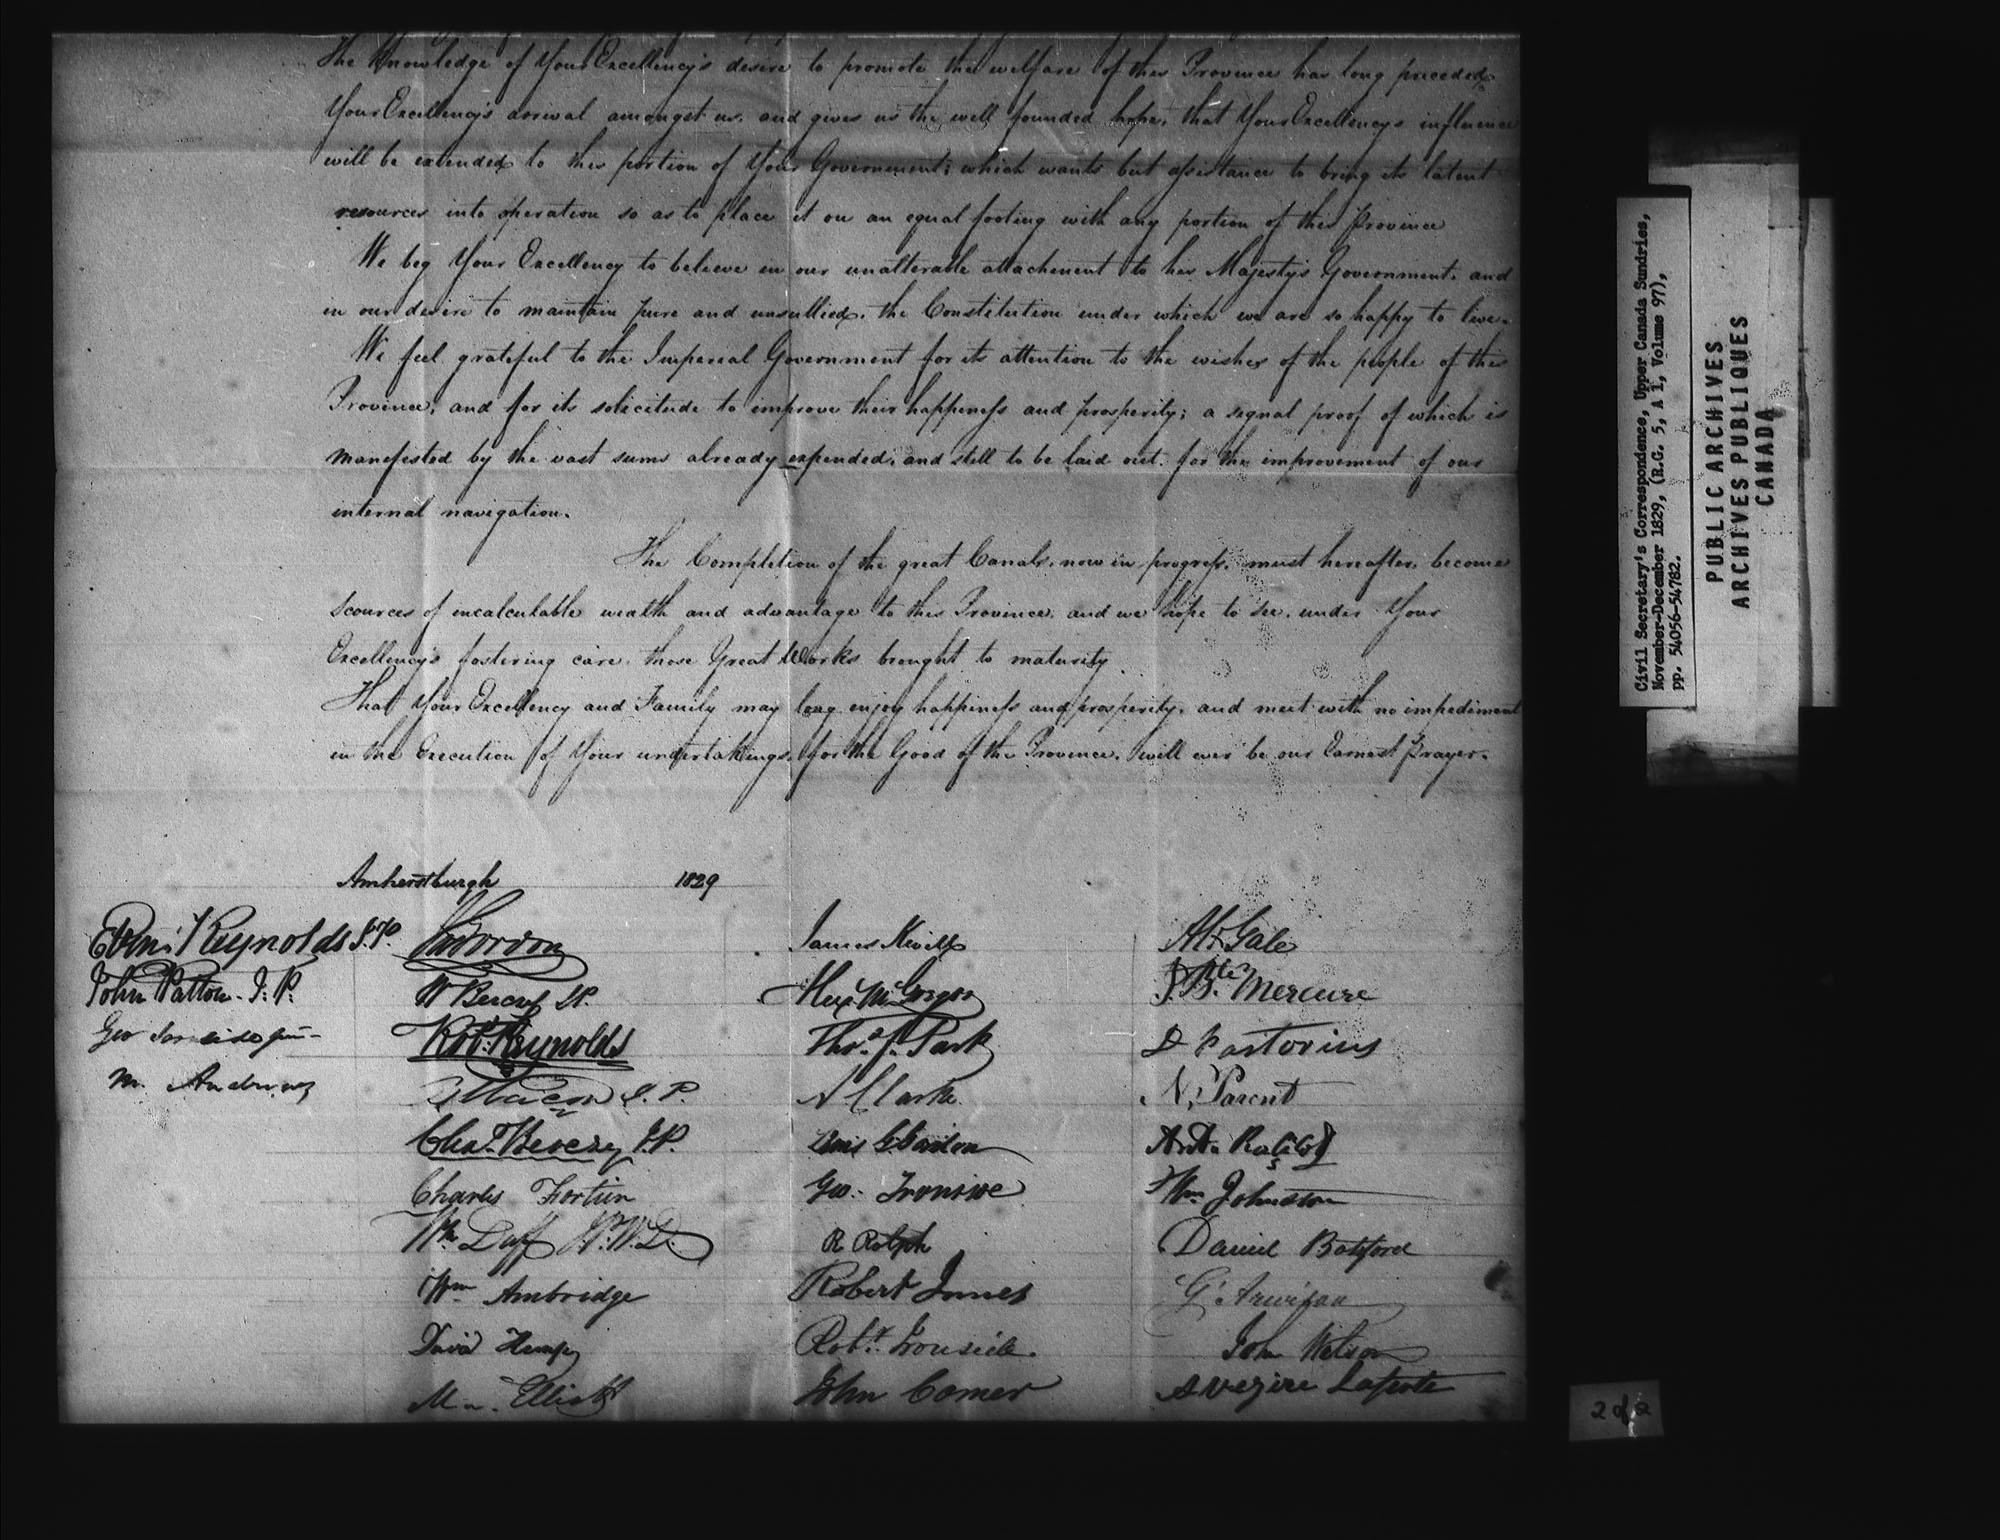 The Knowledge of Your Excellency's desire to promote the welfare of this Province has long preceded
Your Excellency's arrival amongst us. and gives us the well founded hope, that Your Excellency's influence
will be extended to this portion of Your Government; which wants but assistance to bring its latent
resources into operation so as to place it on an equal footing with any portion of this Province
We beg Your Excellency to believe in our unalterable attachment to his Majesty's Government. and
in our desire to maintain pure and unsullied. the Constitution under which we are so happy to live.
We feel grateful to the Imperial Government for its attention to the wishes of the people of this
Province, and for its solicitude to improve their happiness and prosperity; a signal proof of which is
manifested by the vast sums already expended, and still to be laid out. for the improvement of our
internal navigation.
The Completion of the great Canals, now in progress. must hereafter. become
Scources of incalculable wealth and advantage to this Province. and we hope to see. under Your
Excellency's fostering care. those Great Works brought to maturity.
That Your Excellency and Family may long enjoy happiness and prosperity. and meet with no impediment
in the Execution of Your undertakings, for the Good of the Province. will ever be our Earnest Prayer.
Amherstburgh 1829
Reynolds J.P.
John Patton. J. P.
Geo
M. Andrews
Gordon
W J.P.
Robt. Reynolds
J. P.
Chas. J.P.
Charles Fortier
Wm Duff
Wm Ambridge
David Kemp
Elliott
James Kevill
Alex McGregor
Thos. J. Park
A Clarke
Geo. Ironside
R Rolph
Robert Innes
Robt. Ironside.
John Comer
Alx Gale
J. Bte Mercure
Sartorius
N, Parent
Wm Johnston
Daniel Botsford
John Wilson
Laferte
Civil Secretary's Correspondence, Upper Canada Sundries,
November-December 1829, (R.G. 5, A 1, Volume 97),
pp. 54056-54782.
PUBLIC ARCHIVES
ARCHIVES PUBLIQUES
CANADA
2 of 2